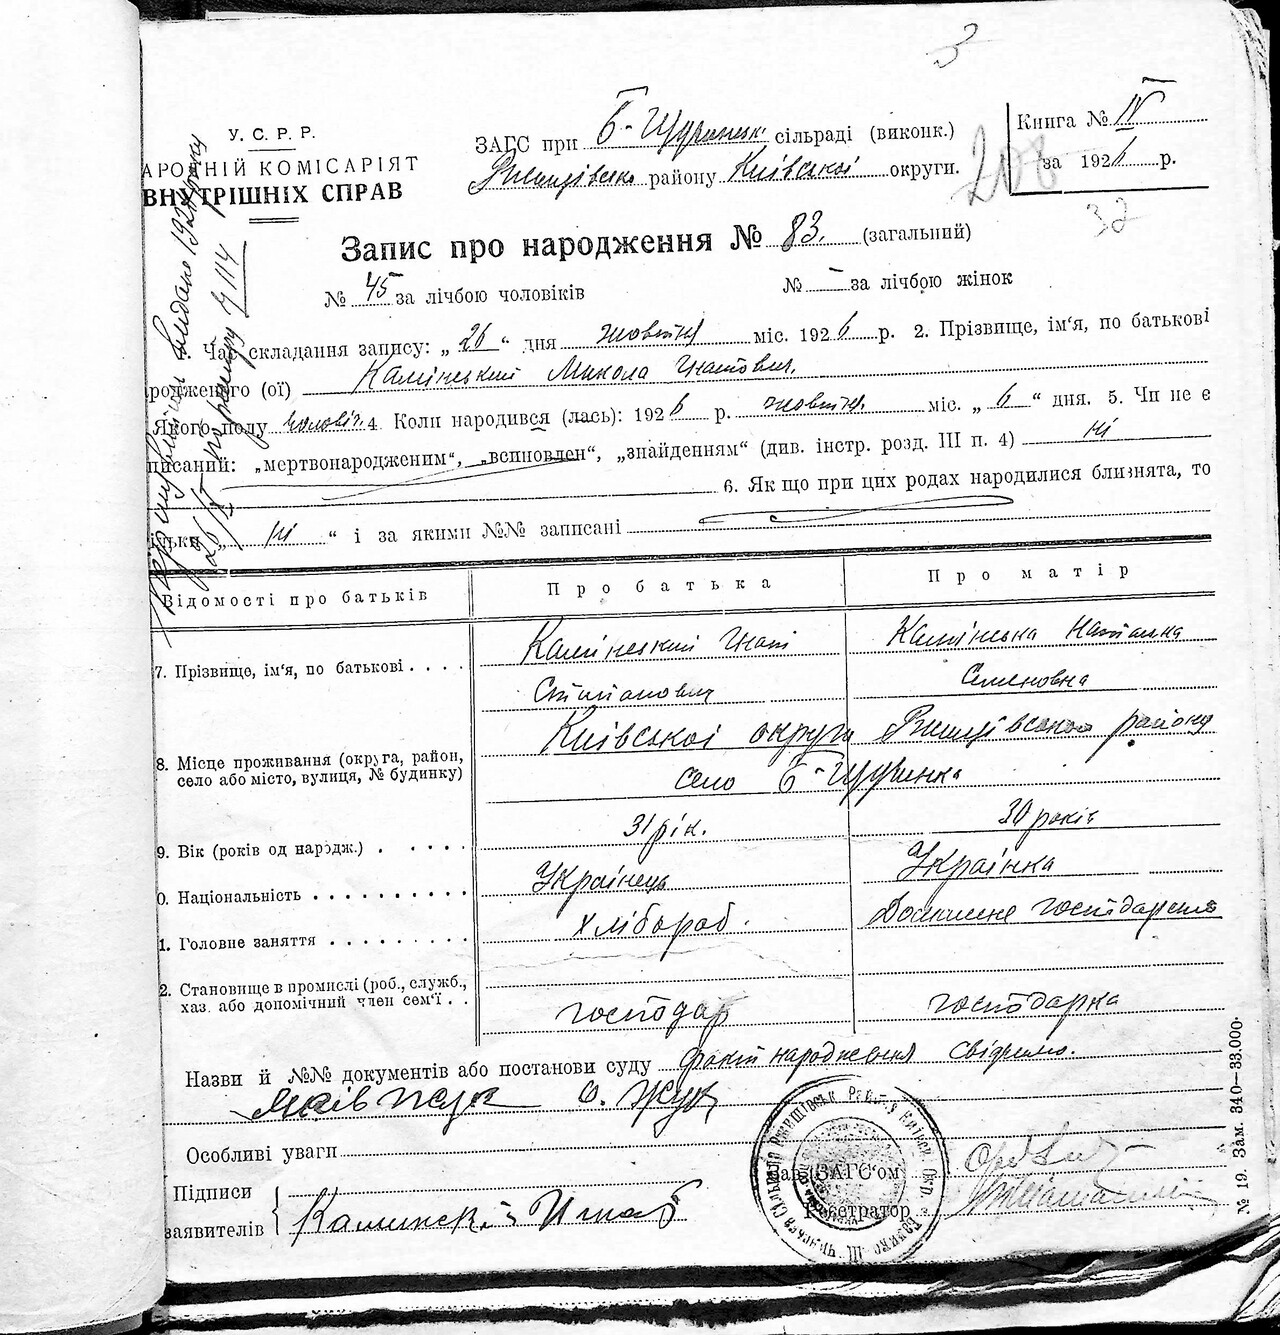 3
У. С. Р. Р.
АРОДНІЙ КОМІСАРІЯТ
ВНУТРІШНІХ СПРАВ
ЗАГС при Б-Щучинськ. сільраді (виконк.)
Ржищівсько району Київської округи.
Книга № IV
за 1926 р.
208
32
видано 192 року
по рапорту № 114
Запис про народження № 83. (загальний)
№ 45 за лічбою чоловіків № – за лічбою жінок
Час складання запису: „ 26 “ дня жовтня міс. 1926 р. 2. Прізвище, ім'я, по батькові
родженого (ої) Камінський Микола Гнатович.
Якого полу чоловіч. 4. Коли народився (лась): 1926 р. жовтня. міс. „ 6 “ дня. 5. Чи не є
писаний: „мертвонародженим“, „всиновлен“, „знайденням“ (див. інстр. розд. III п. 4) ні
6. Як що при цих родах народилися близнята, то
ільки „ ні “ і за якими №№ записані
Відомості про батьків Про батька Про матір
7. Прізвище, ім'я, по батькові . . . . Камінський Гнат Камінська Наталка
Степанович Семеновна
8. Місце проживання (округа, район,
село або місто, вулиця, № будинку)
Київської округи Ржищівського району
село Б-Щучинка
9. Вік (років од нарэдж.) . . . . . 31 рік. 30 років
0. Національність . . . . . . . . . . Українець Українка
1. Головне заняття . . . . . . . . . Хлібороб. Домашнє господарство
2. Становище в промислі (роб., служб.,
хаз. або допомічний член сем'ї . .
господар господарка
Назви й №№ документів або постанови суду факт народження свідчимо.
Яків Жук О. Жук
Особливі уваги
Підписи
заявителів { Каминский Игнат
Зав. ЗАГС'ом
Реєстратор
№ 19. Зам. 340—33.000.